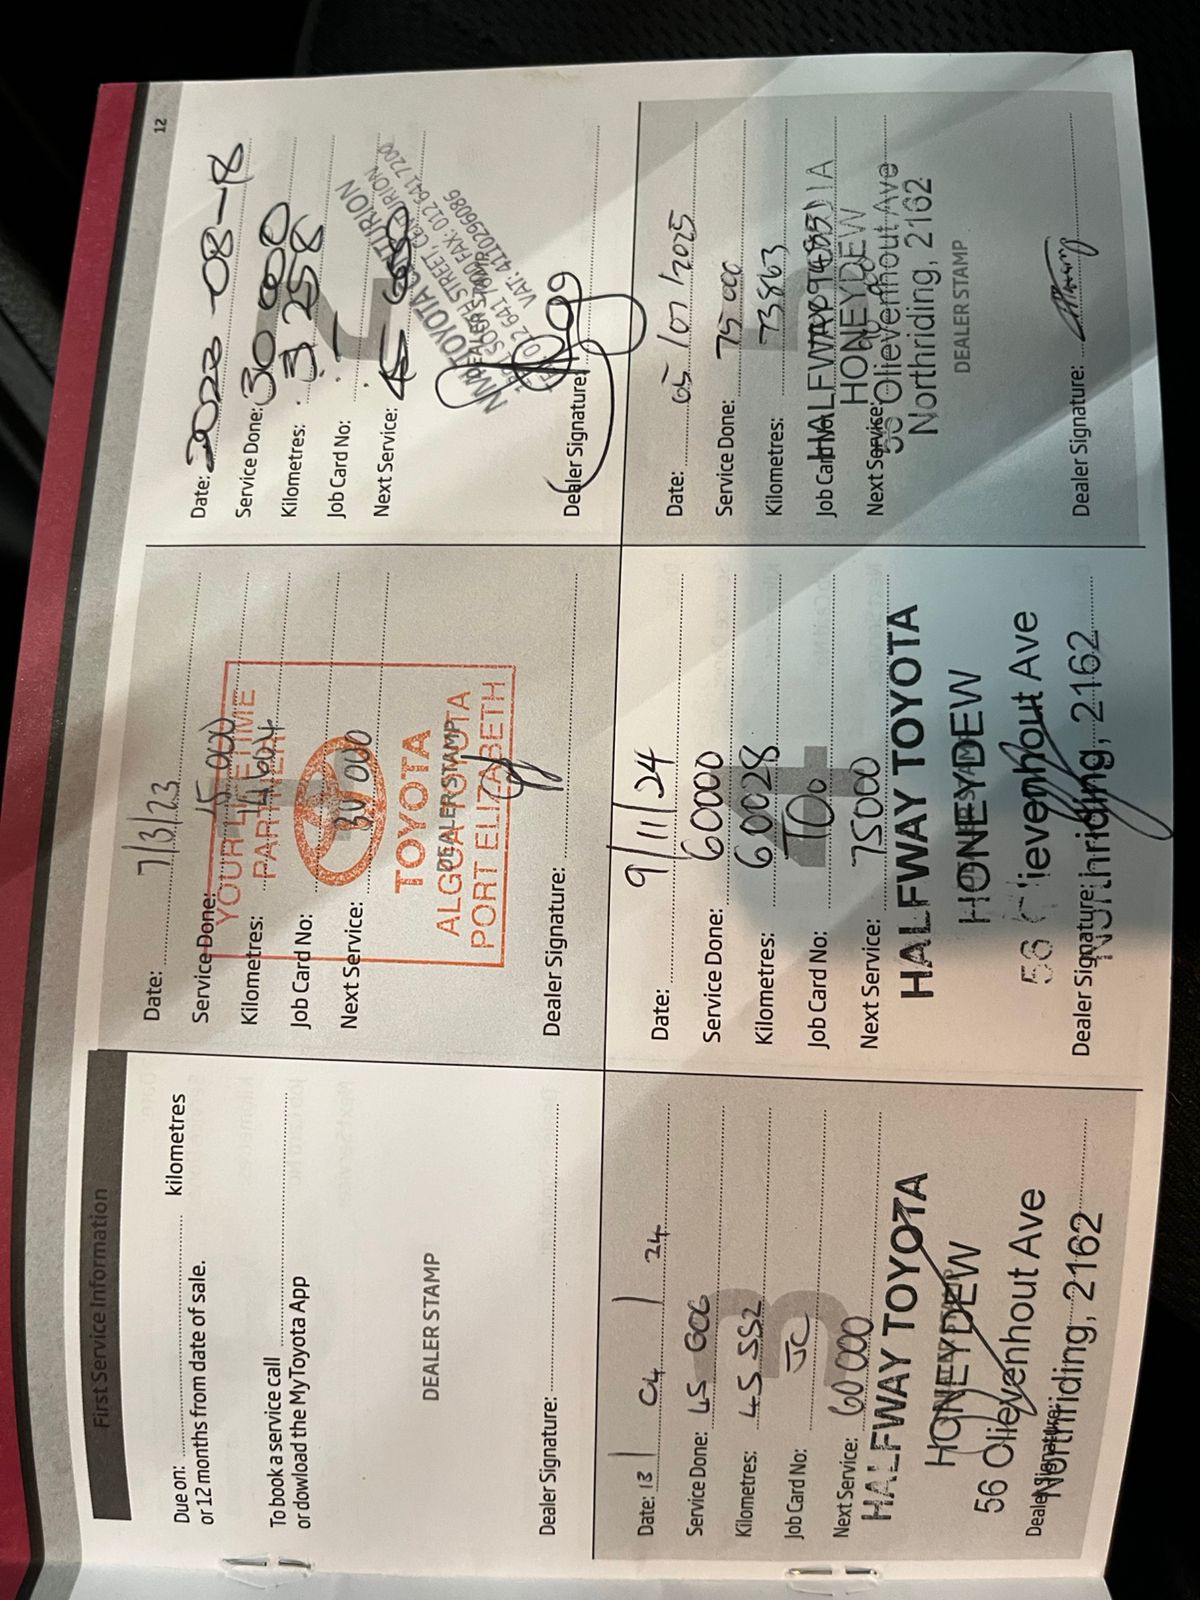 12
First Service Information
Due on: kilometres
or 12 months from date of sale.
To book a service call
or dowload the MyToyota App
DEALER STAMP
Dealer Signature:
Date: 7/3/23
Service Done: 15 000
Kilometres:
Job Card No:
Next Service: 30 000
YOUR LIFETIME
PARTNER
TOYOTA
DEALER STAMP
ALGOA TOYOTA
PORT ELIZABETH
Dealer Signature:
Date: 2023-08-18
Service Done: 30 000
Kilometres: 3 258
Job Card No:
Next Service: 45 000
2
NMI TOYOTA CENTURION
DEALER STAMP
FAX: 012 641 7200
VAT: 4110296086
Dealer Signature:
Date: 13 / 04 / 24
Service Done: 45 000
Kilometres: 45 552
Job Card No: JC
Next Service: 60 000
3
HALFWAY TOYOTA
HONEYDEW
56 Olievenhout Ave
Northriding, 2162
Dealer Signature:
Date: 9/11/24
Service Done: 60000
Kilometres: 60028
Job Card No:
Next Service: 75000
4
HALFWAY TOYOTA
HONEYDEW
56 Olievenhout Ave
Northriding, 2162
Dealer Signature:
Date: 05/07/2025
Service Done: 75 000
Kilometres: 73863
Job Card No:
Next Service:
HALFWAY
HONEYDEW
56 Olievenhout Ave
Northriding, 2162
DEALER STAMP
Dealer Signature: